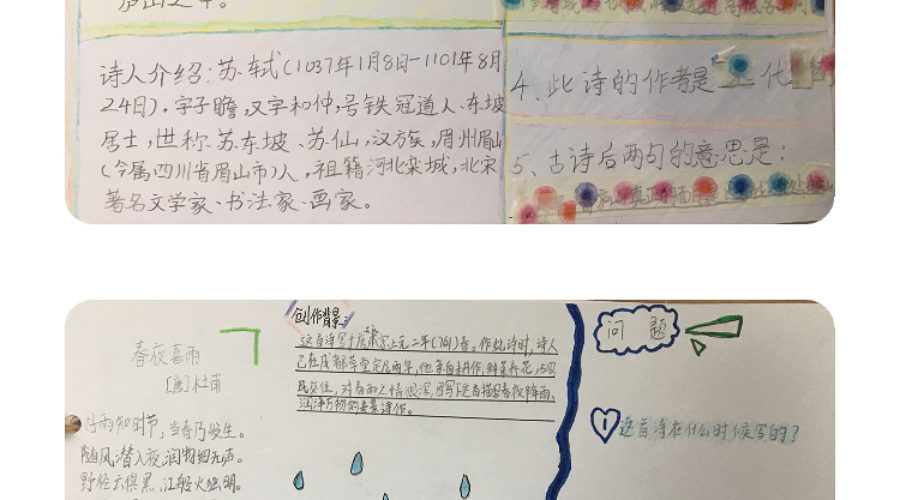 诗人介绍:苏轼(1037年1月8日-1101年8月
24日),字子瞻,又字和仲,号铁冠道人、东坡
居士,世称苏东坡、苏仙,汉族,眉州眉山
(今属四川省眉山市)人,祖籍河北栾城,北宋
著名文学家、书法家、画家。
4、此诗的作者是 代
5、古诗后两句的意思是:
春夜喜雨
[唐]杜甫
好雨知时节,当春乃发生。
随风潜入夜,润物细无声。
野径云俱黑,江船火独明。
创作背景:
这首诗写于唐肃宗上元二年(761)春。作此诗时,诗人
已在成都草堂定居两年,他亲自耕作,种菜养花,与农
民交往,对春雨之情很深,因而写下这首描写春夜降雨、
润泽万物的美景诗作。
问题
1 这首诗在什么时候写的?